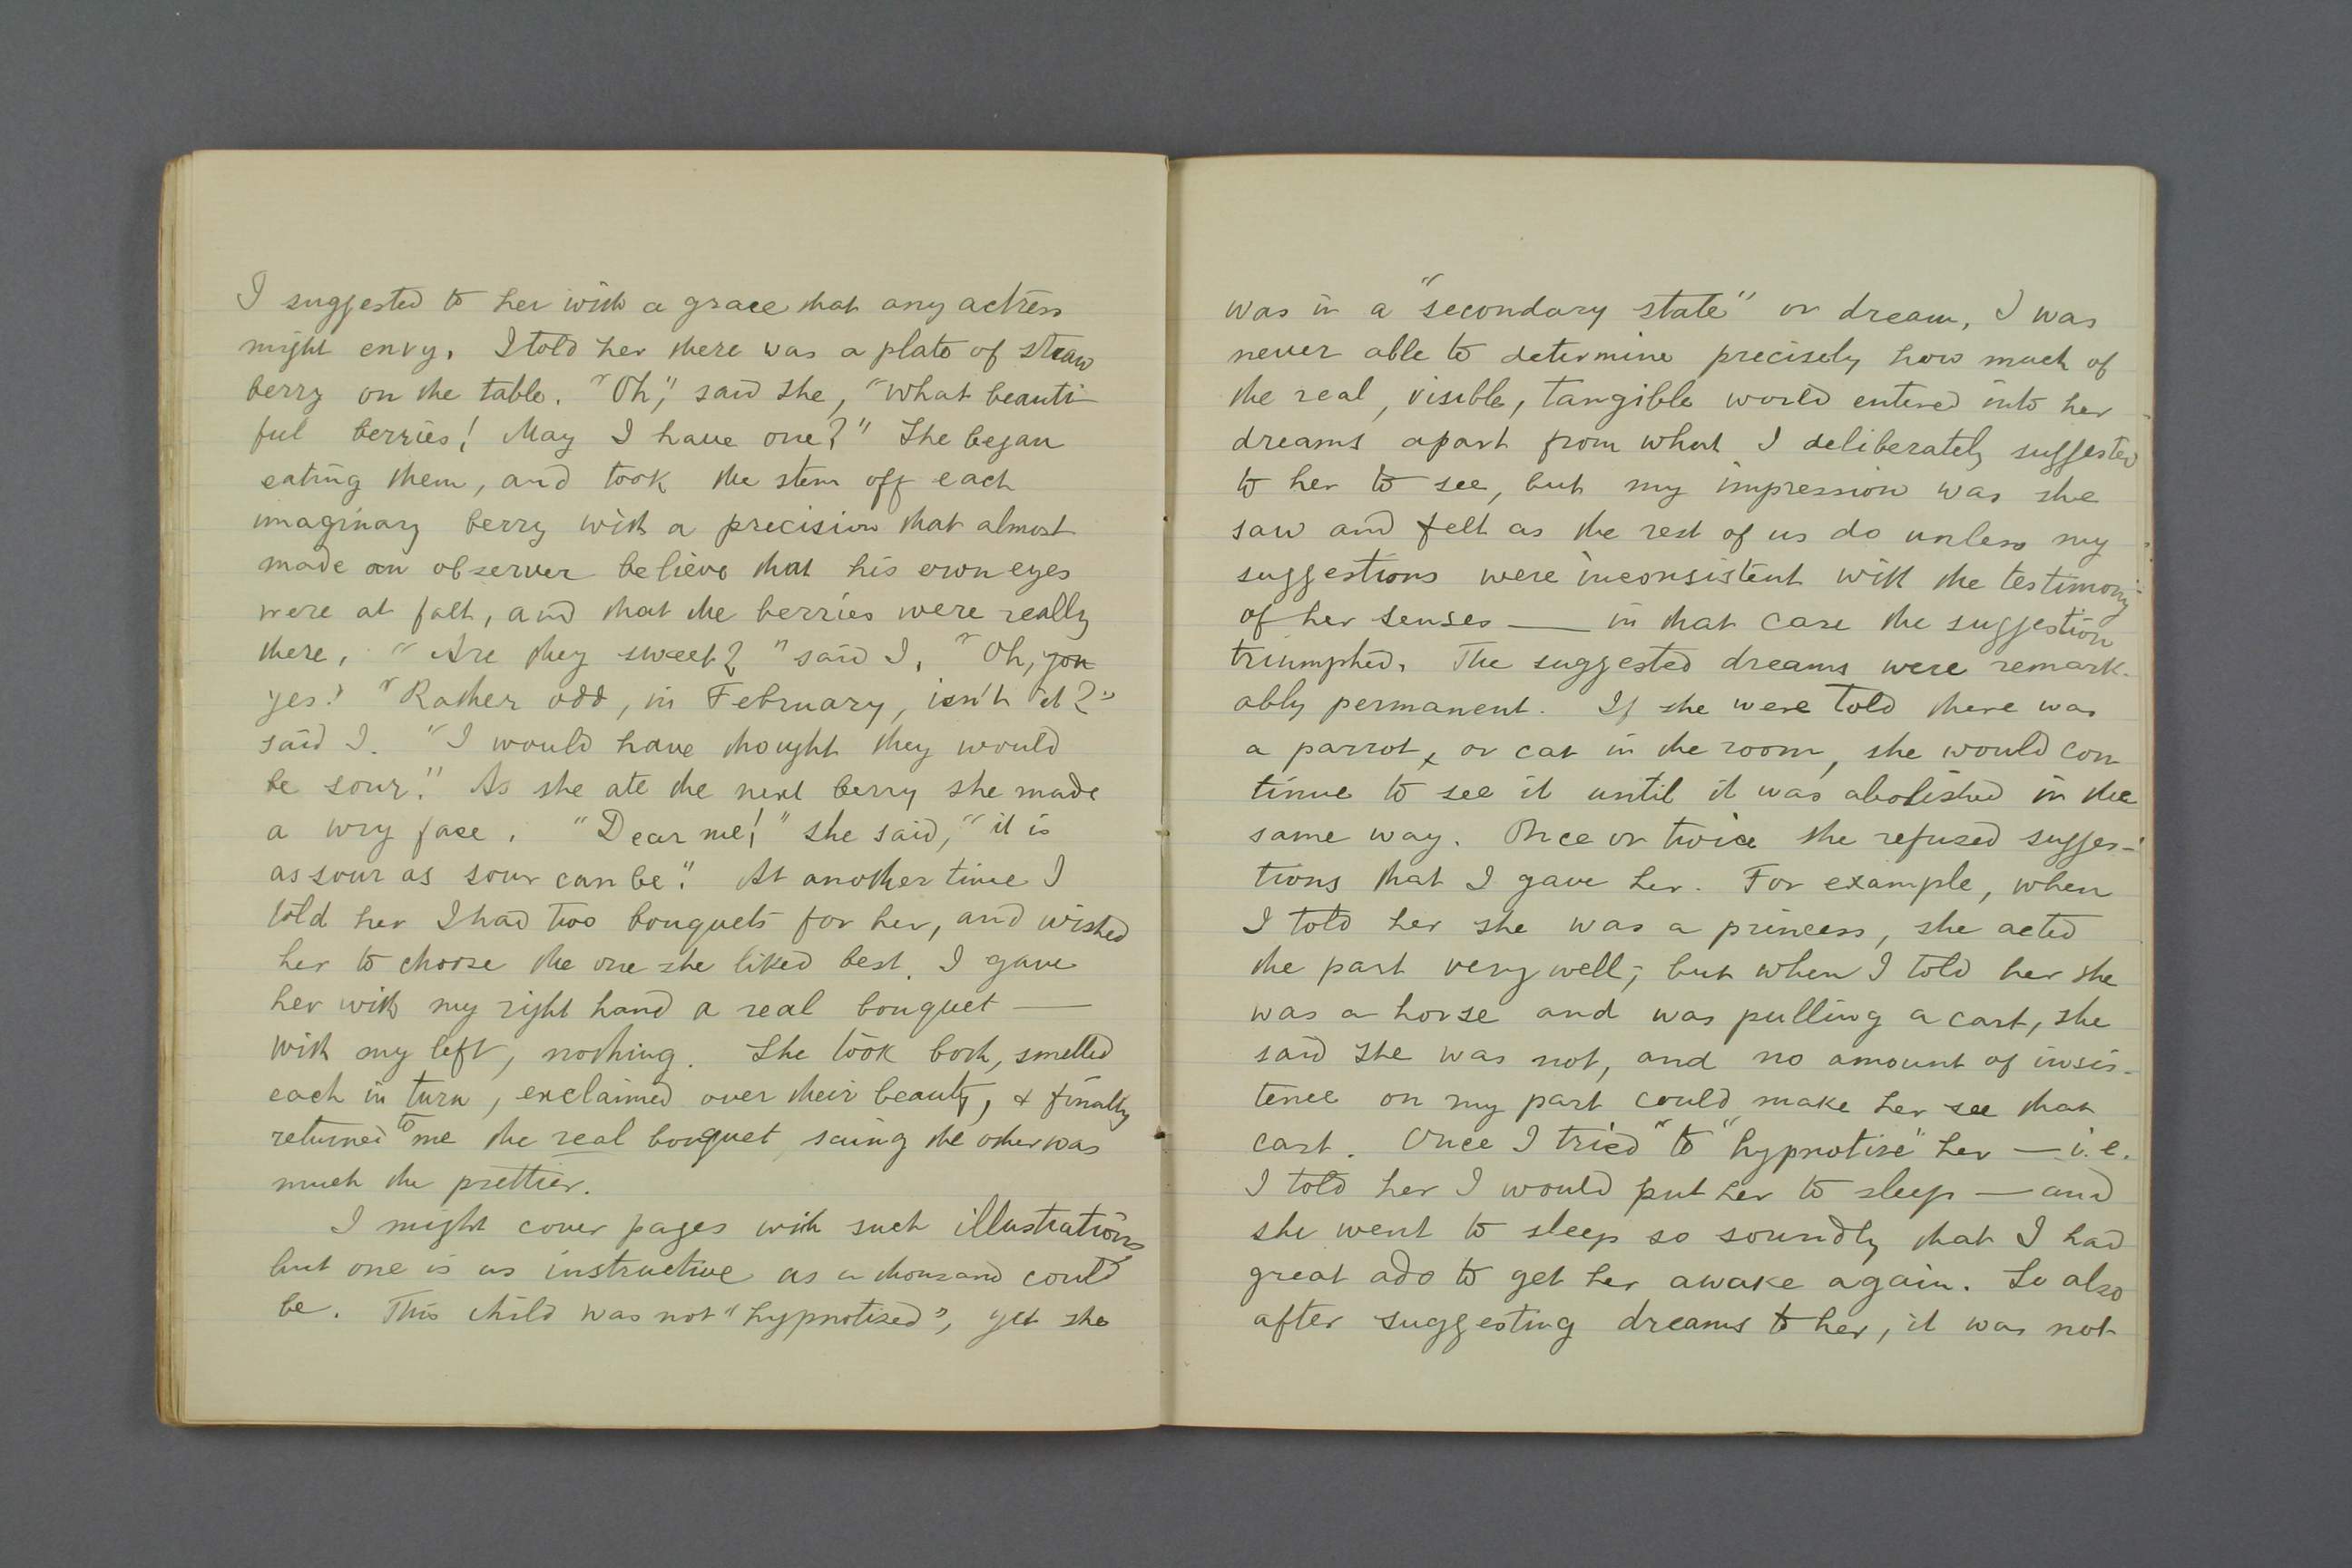 I suggested to her with a grace that any actress
might envy. I told her there was a plate of straw
berry on the table. "Oh," said she, "What beauti-
ful berries! May I have one?" She began
eating them, and took the stem off each
imaginary berry with a precision that almost
made an observer believe that his own eyes
were at falt, and that the berries were really
there. "Are they sweet?" said I. "Oh, you
yes!" "Rather odd, in February, isn't it?"
said I. "I would have thought they would
be sour." As she ate the next berry she made
a wry face. "Dear me!" she said, "it is
as sour as sour can be." At another time I
told her I had two bouquets for her, and wished
her to choose the one she liked best. I gave
her with my right hand a real bouquet —
with my left, nothing. She took both, smelled
each in turn, exclaimed over their beauty, & finally
returned to me the real bouquet, saing the other was
much the prettier.
I might cover pages with such illustrations
but one is as instructive as a thousand could
be. This child was not "hypnotised", yet she
was in a "secondary state" or dream. I was
never able to determine precisely how much of
the real, visible, tangible world entered into her
dreams apart from what I deliberately suggested
to her to see, but my impression was she
saw and felt as the rest of us do unless my
suggestions were inconsistent with the testimony
of her senses — in that case the suggestion
triumphed. The suggested dreams were remark-
ably permanent. If she were told there was
a parrot, or cat in the room, she would con
tinue to see it until it was abolished in the
same way. Once or twice she refused sugges-
tions that I gave her. For example, when
I told her she was a princess, she acted
the part very well; but when I told her she
was a horse and was pulling a cart, she
said she was not, and no amount of insis-
tence on my part could make her see that
cart. Once I tried "to "hypnotise" her — i.e.
I told her I would put her to sleep — and
she went to sleep so soundly that I had
great ado to get her awake again. So also
after suggesting dreams to her, it was not